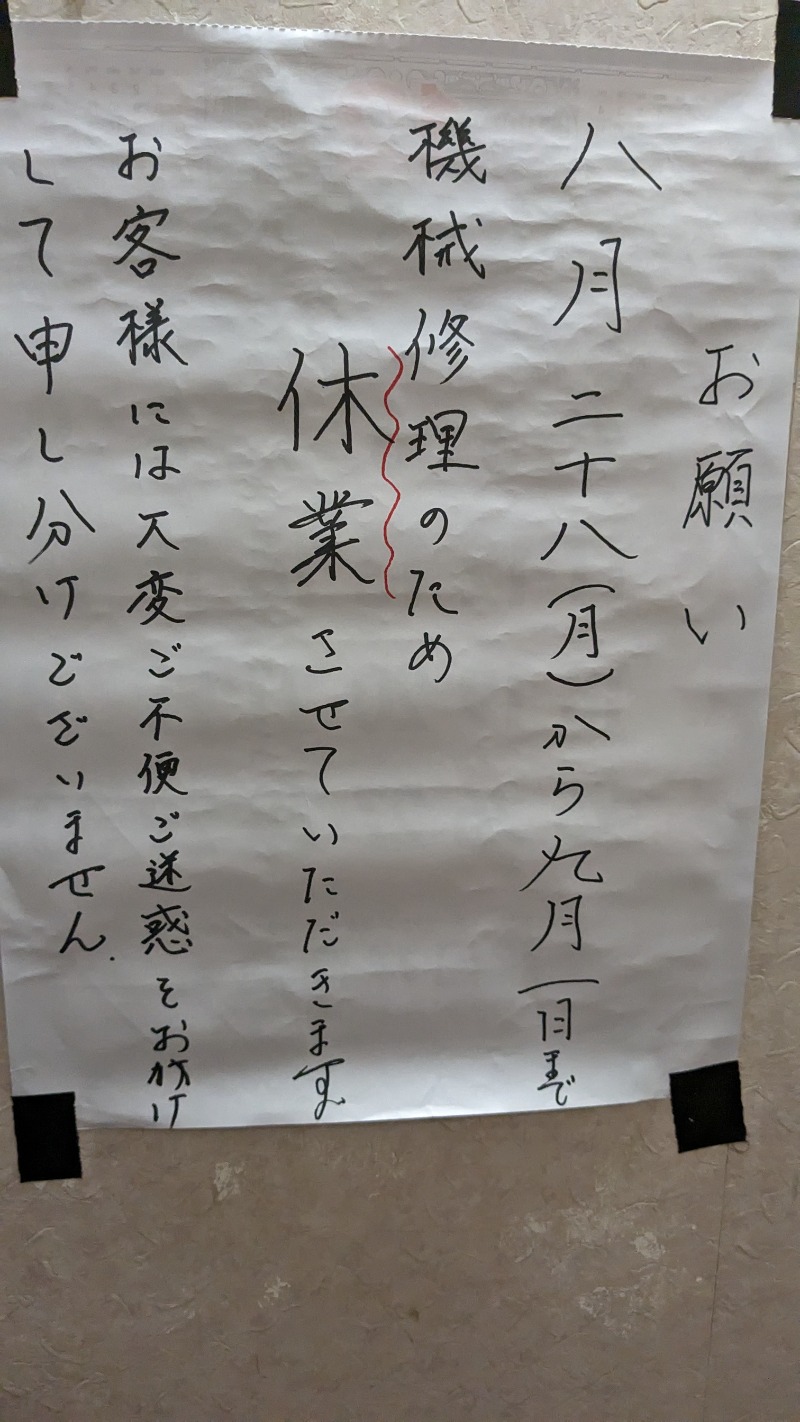 お願い
八月二十八(月)から九月一日まで
機械修理のため
休業させていただきます
お客様には大変ご不便ご迷惑をお掛け
して申し分けございません.